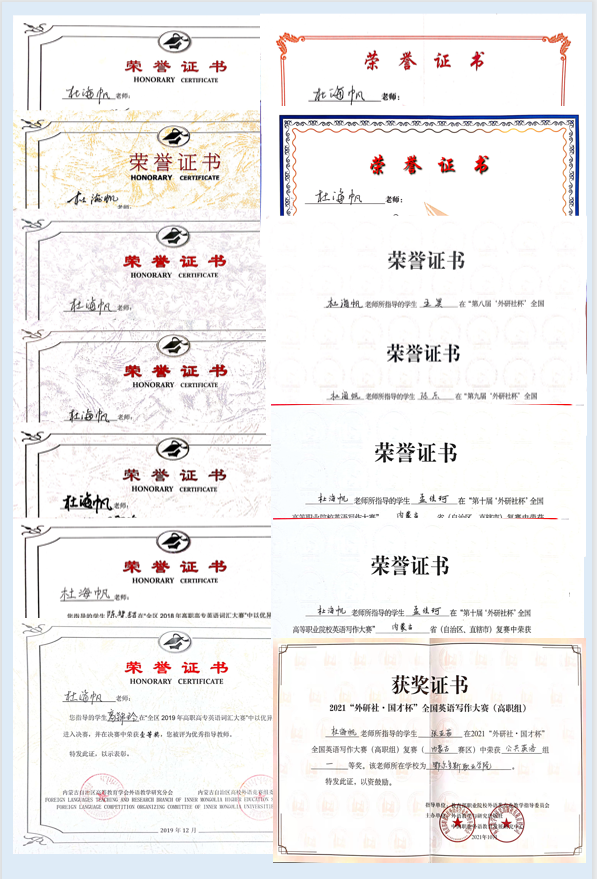 荣誉证书
HONORARY CERTIFICATE
杜海帆 老师:
荣誉证书
HONORARY CERTIFICATE
杜海帆 老师:
荣誉证书
HONORARY CERTIFICATE
杜海帆 老师:
荣誉证书
HONORARY CERTIFICATE
杜海帆 老师:
荣誉证书
HONORARY CERTIFICATE
杜海帆 老师:
荣誉证书
HONORARY CERTIFICATE
杜海帆 老师:
您指导的学生 在“全区 2018 年高职高专英语词汇大赛”中以优异
荣誉证书
HONORARY CERTIFICATE
杜海帆 老师:
您指导的学生 在“全区 2019 年高职高专英语词汇大赛”中以优异
进入决赛,并在决赛中荣获壹等奖,您被评为优秀指导教师。
特发此证,以示表彰。
内蒙古自治区高职教育学会外语教学研究分会
FOREIGN LANGUAGES TEACHING AND RESEARCH BRANCH OF INNER MONGOLIA HIGHER EDUCATION
FOREIGN LANGUAGE COMPETITION ORGANIZING COMMITTEE OF INNER MONGOLIA UNIVERSITIES
2019 年 12 月
荣誉证书
杜海帆 老师:
荣誉证书
杜海帆 老师:
荣誉证书
杜海帆 老师所指导的学生 在“第八届‘外研社杯’全国
荣誉证书
杜海帆 老师所指导的学生 在“第九届‘外研社杯’全国
荣誉证书
杜海帆 老师所指导的学生 在“第十届‘外研社杯’全国
高等职业院校英语写作大赛” 内蒙古 省(自治区、直辖市)复赛中荣获
荣誉证书
杜海帆 老师所指导的学生 在“第十届‘外研社杯’全国
高等职业院校英语写作大赛” 内蒙古 省(自治区、直辖市)复赛中荣获
获奖证书
2021“外研社·国才杯”全国英语写作大赛(高职组)
杜海帆 老师所指导的学生 在2021“外研社·国才杯”
全国英语写作大赛(高职组)复赛( 内蒙古 赛区)中荣获 公共英语 组
一 等奖。该老师所在学校为( 鄂尔多斯职业学院 )。
特发此证,以资鼓励。
2021年10月